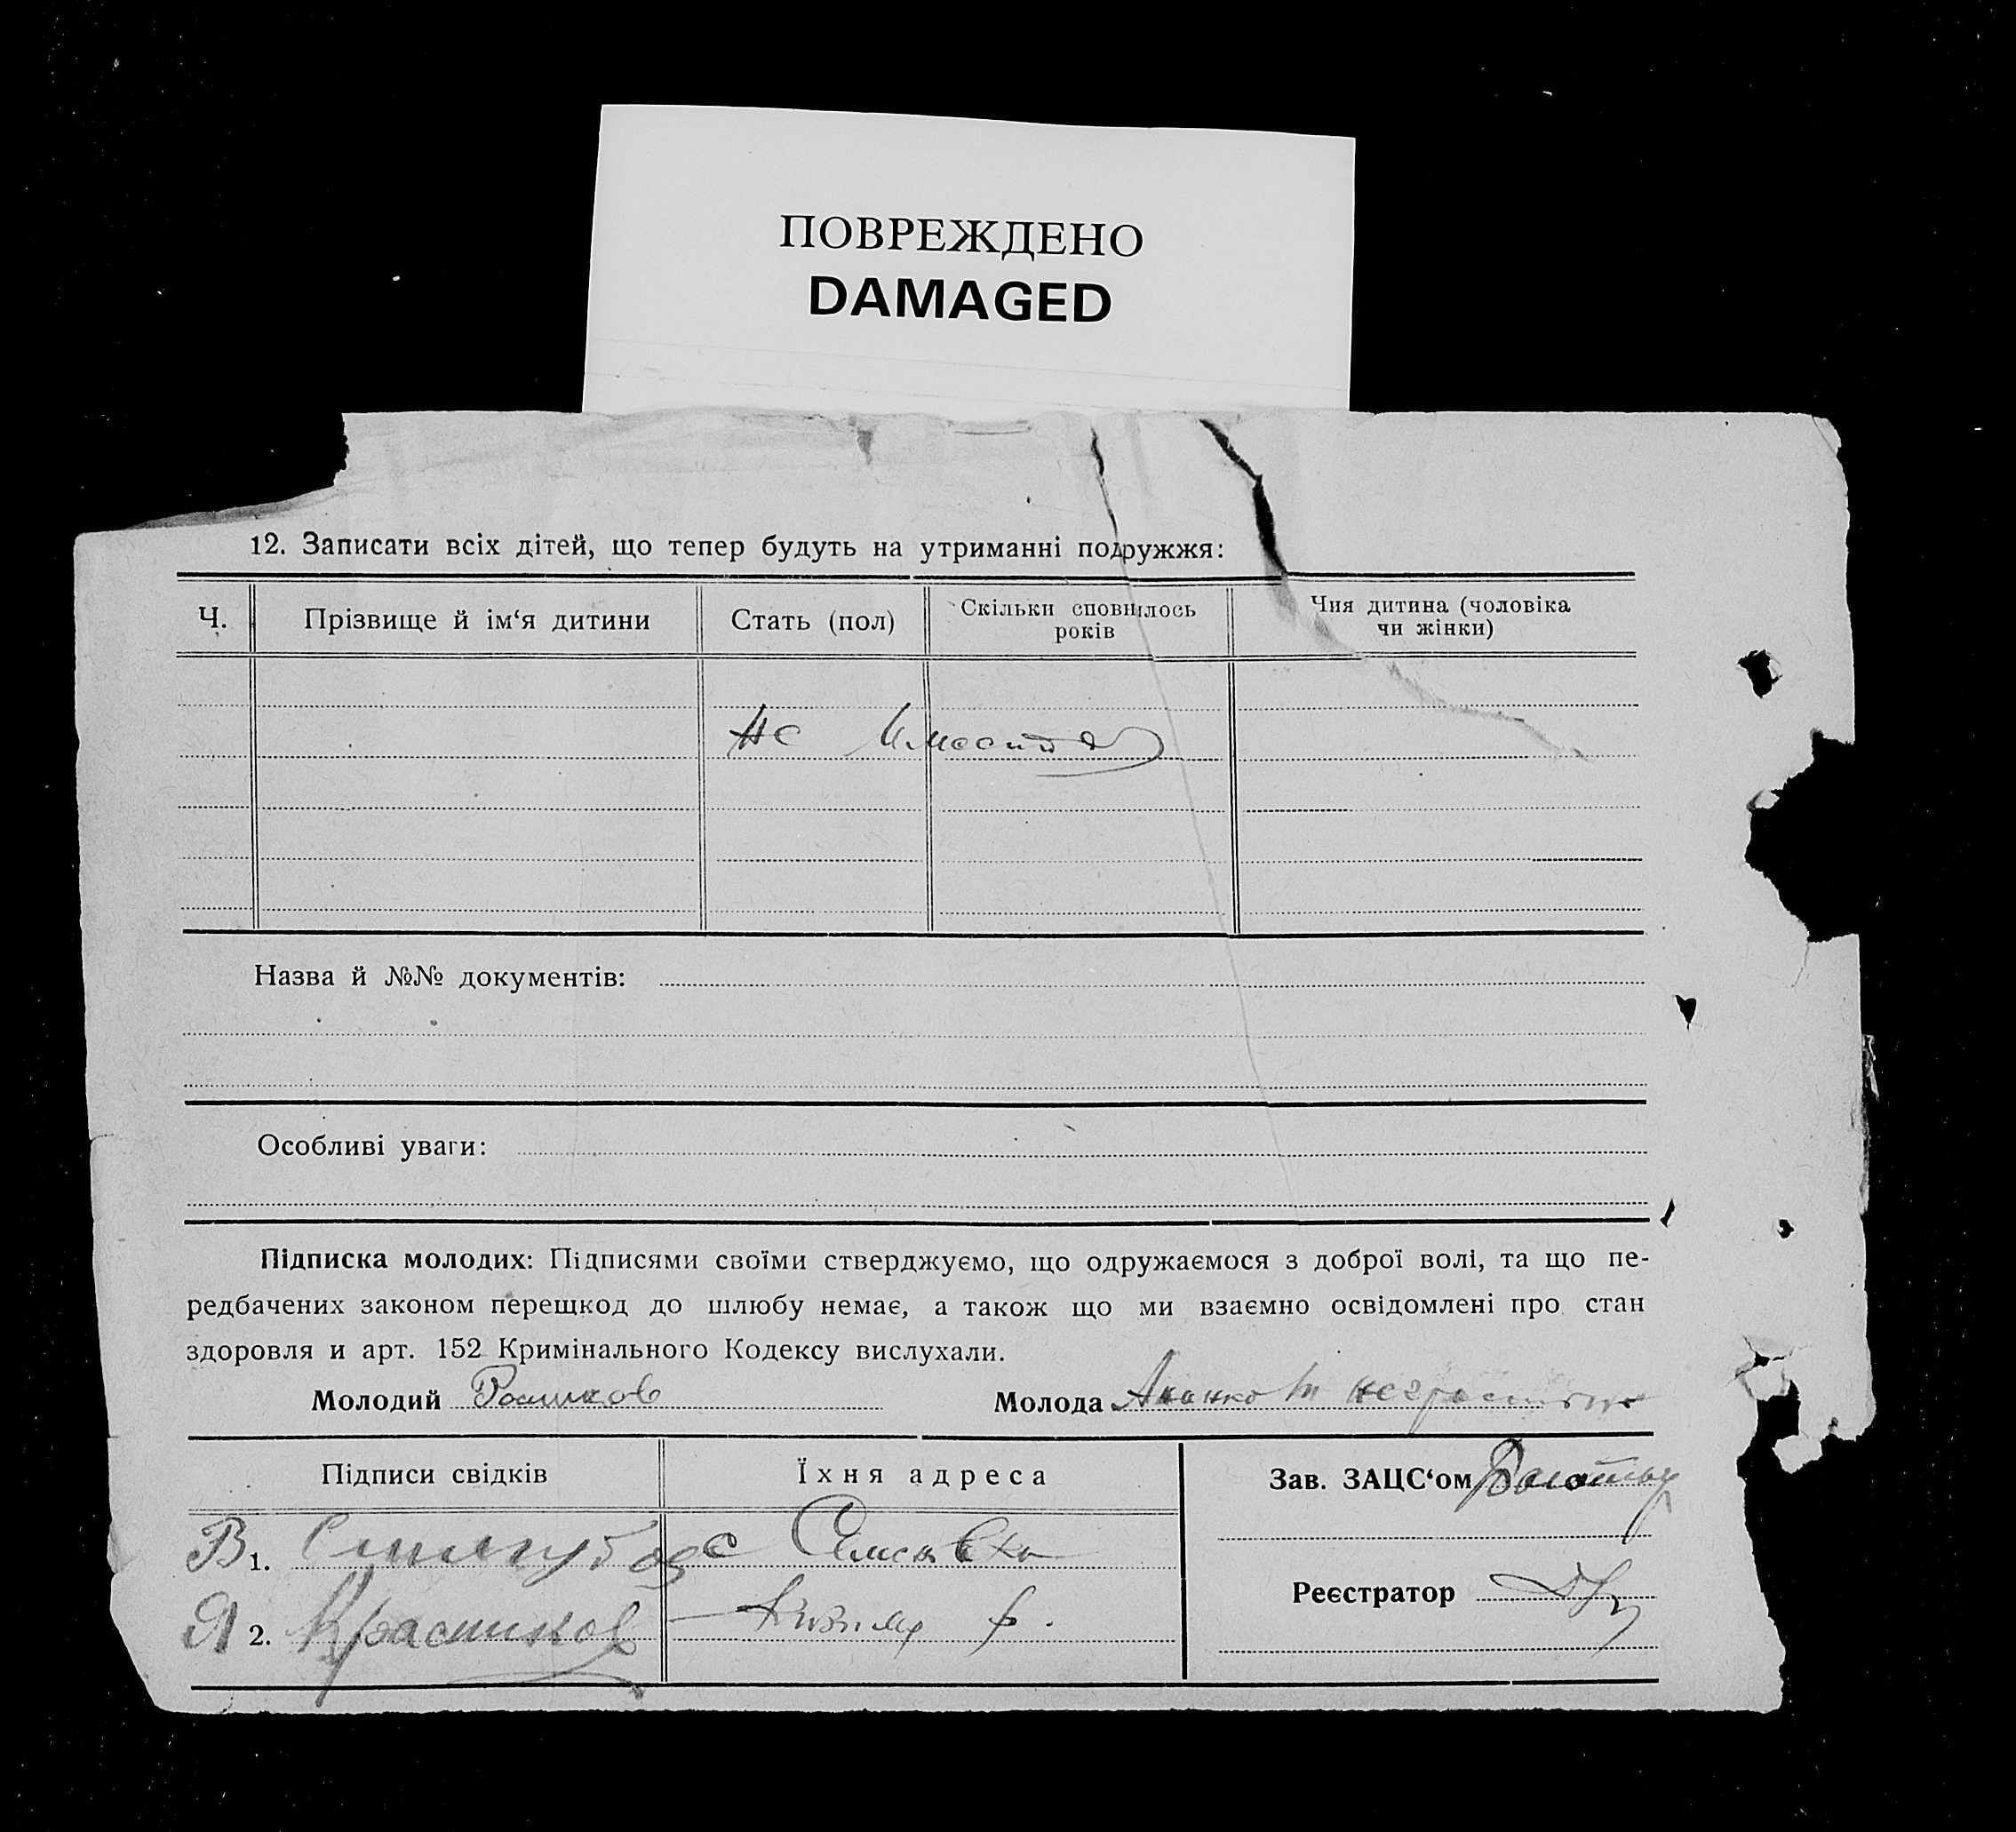 ПОВРЕЖДЕНО
DAMAGED
12. Записати всіх дітей, що тепер будуть на утриманні подружжя:
Ч.
Прізвище й ім‘я дитини
Стать (пол)
Скільки сповнилось
років
Чия дитина (чоловіка
чи жінки)
не
Назва й №№ документів:
Особливі уваги:
Підписка молодих: Підписями своїми стверджуємо, що одружаємося з доброї волі, та що пе-
редбачених законом перещкод до шлюбу немає, а також що ми взаємно освідомлені про стан
здоровля и арт. 152 Кримінального Кодексу вислухали.
Молодий
Молода
Підписи свідків
Їхня адреса
Зав. ЗАЦС‘ом
1.
2. Красников
Реєстратор